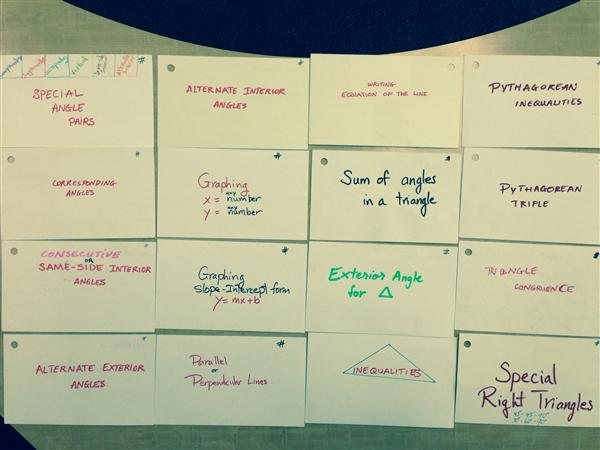 #
SPECIAL
ANGLE
PAIRS
#
ALTERNATE INTERIOR
ANGLES
WRITING
EQUATION OF THE LINE
PYTHAGOREAN
INEQUALITIES
#
CORRESPONDING
ANGLES
#
Graphing
x = any number
y = any number
#
Sum of angles
in a triangle
PYTHAGOREAN
TRIPLE
#
CONSECUTIVE
OR
SAME-SIDE INTERIOR
ANGLES
#
Graphing
Slope-Intercept form
y=mx+b
#
Exterior Angle
for Δ
#
TRIANGLE
CONGRUENCE
#
ALTERNATE EXTERIOR
ANGLES
#
Parallel
or
Perpendicular Lines
INEQUALITIES
#
Special
Right Triangles
45-45-90
30-60-90